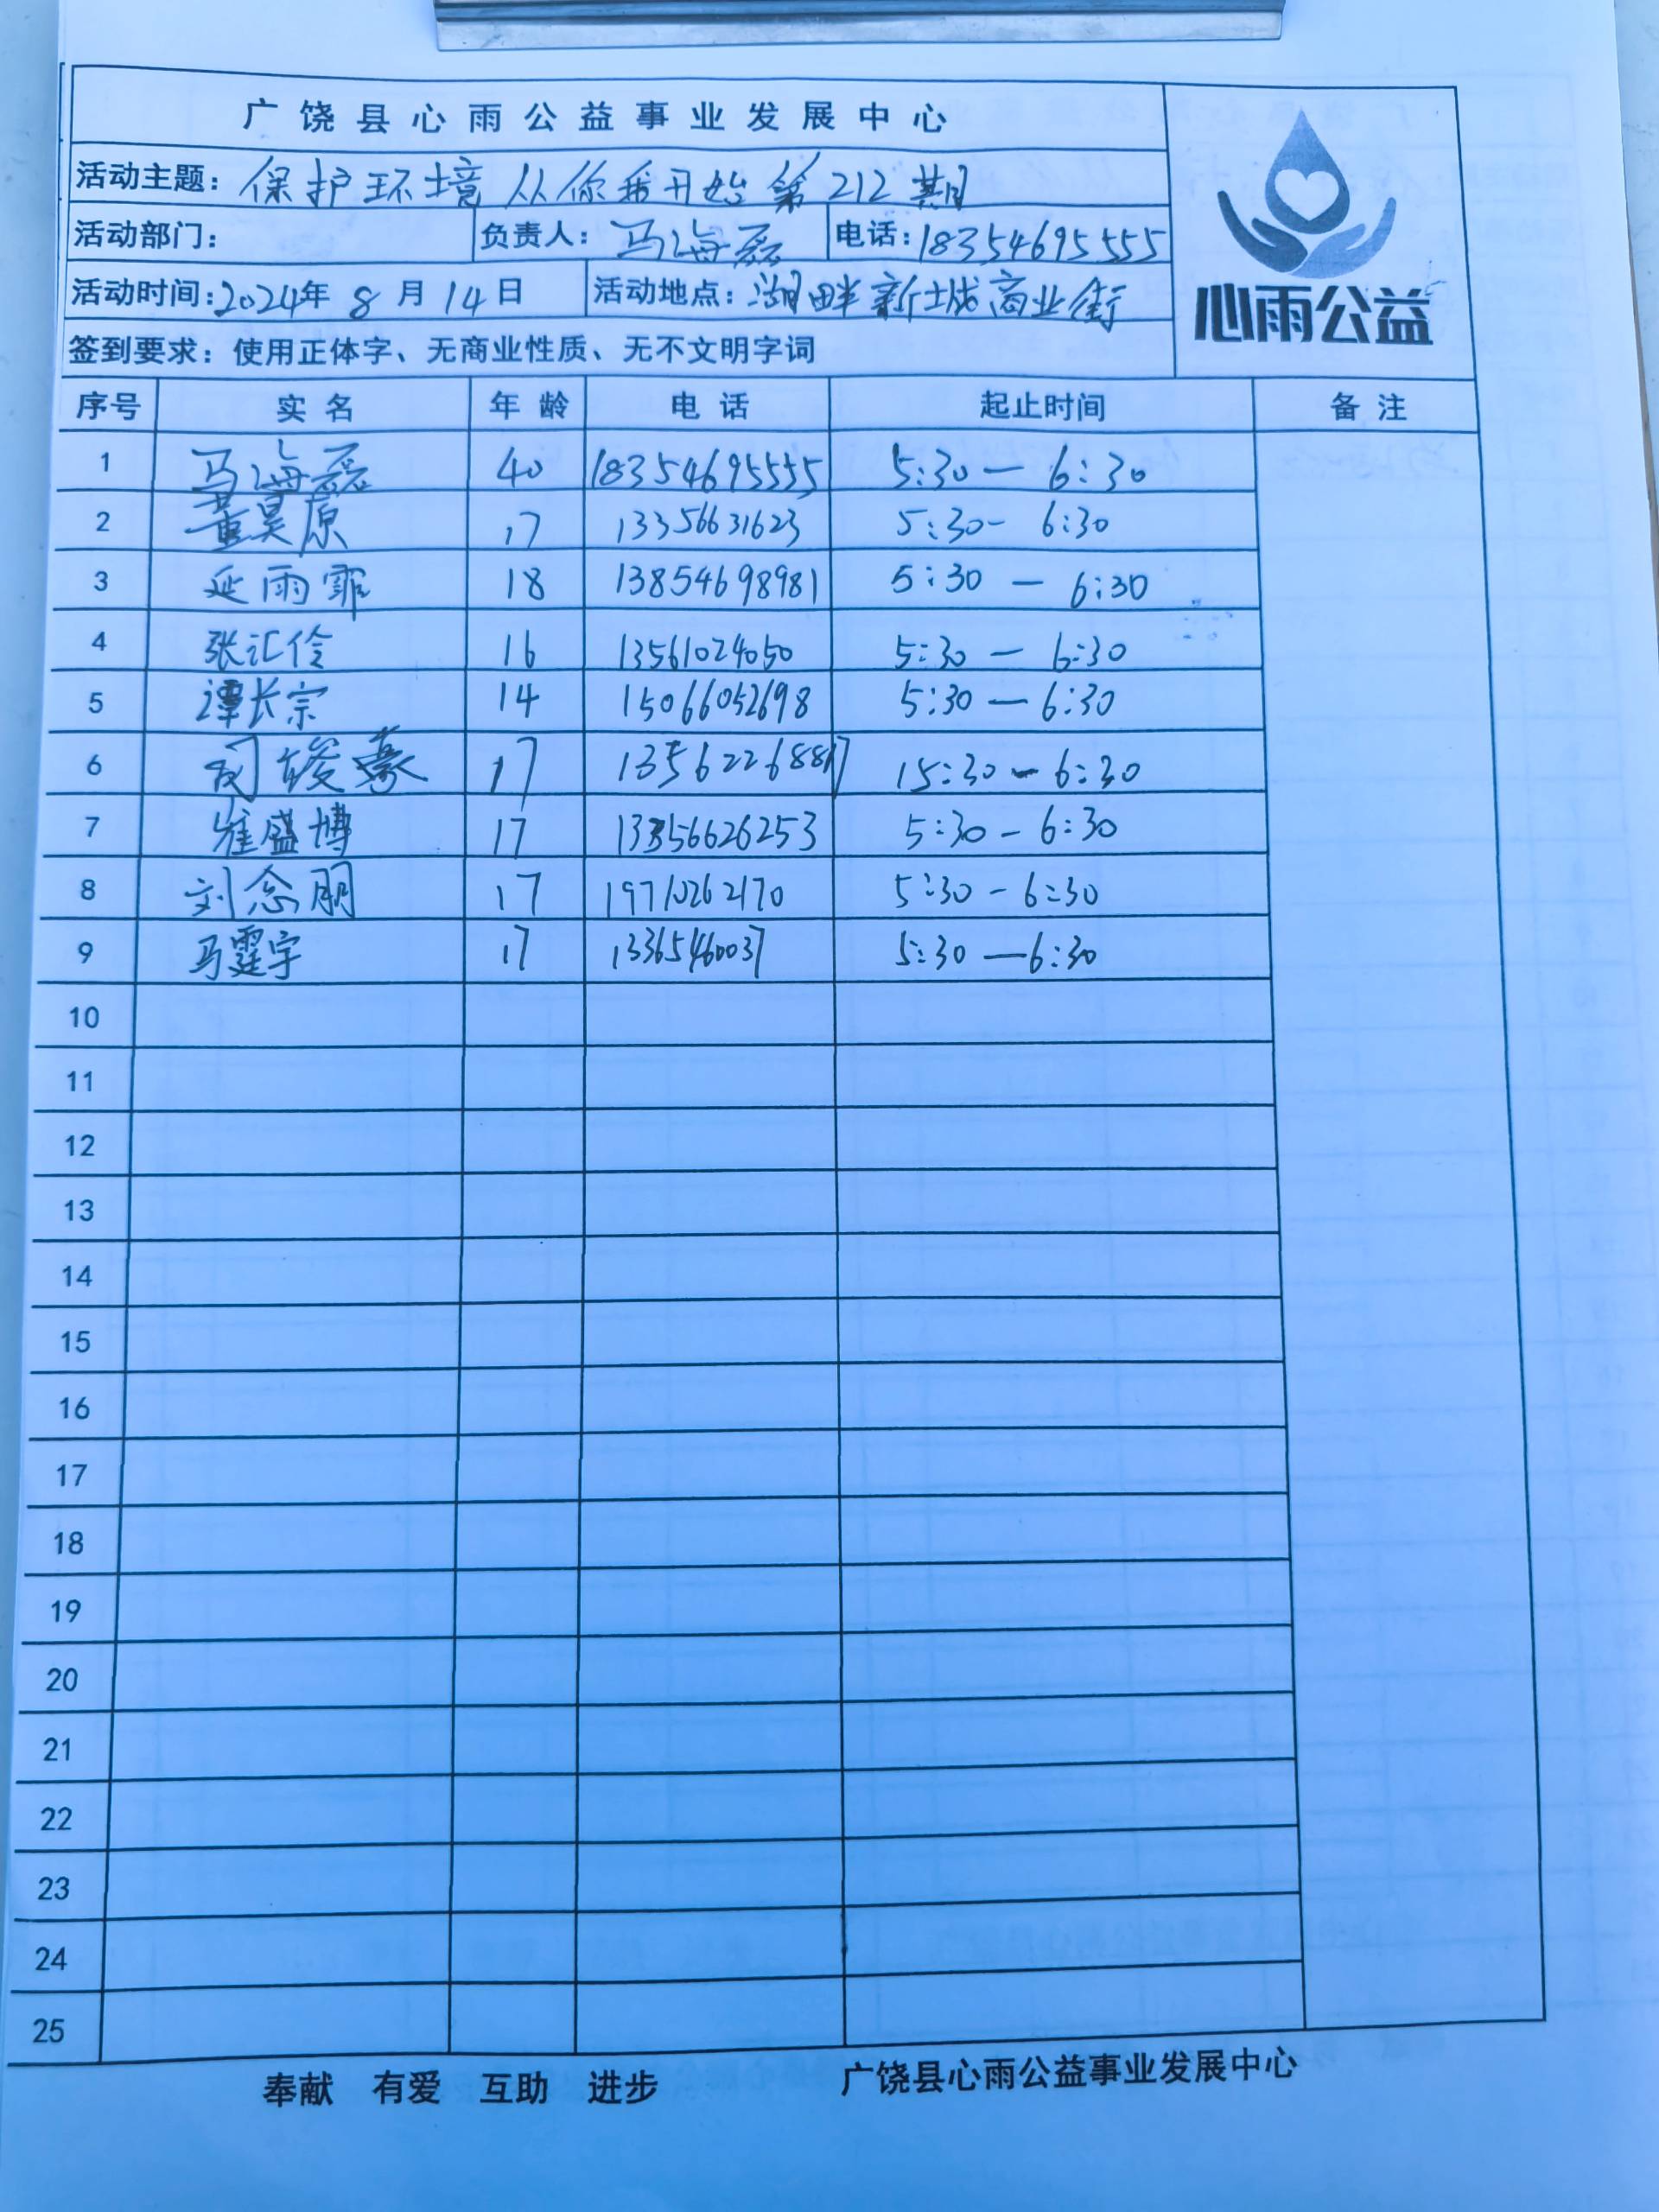 广饶县心雨公益事业发展中心
活动主题：保护环境从你我开始第212期
活动部门： 负责人：马海磊 电话：18354695555
活动时间：2024年8月14日 活动地点：湖畔新城商业街
心雨公益
签到要求：使用正体字、无商业性质、无不文明字词
序号 实名 年龄 电话 起止时间 备注
1 马海磊 40 18354695555 5:30—6:30
2 董昊原 17 13356631623 5:30-6:30
3 延雨霏 18 13854698981 5:30—6:30
4 张汇伶 16 13561024050 5:30—6:30
5 谭长宗 14 15066052698 5:30—6:30
6 17 15:30-6:30
7 崔盛博 17 13356626253 5:30-6:30
8 刘念朋 17 19710262170 5:30-6:30
9 马霆宇 17 13365460037 5:30—6:30
10
11
12
13
14
15
16
17
18
19
20
21
22
23
24
25
奉献 有爱 互助 进步 广饶县心雨公益事业发展中心